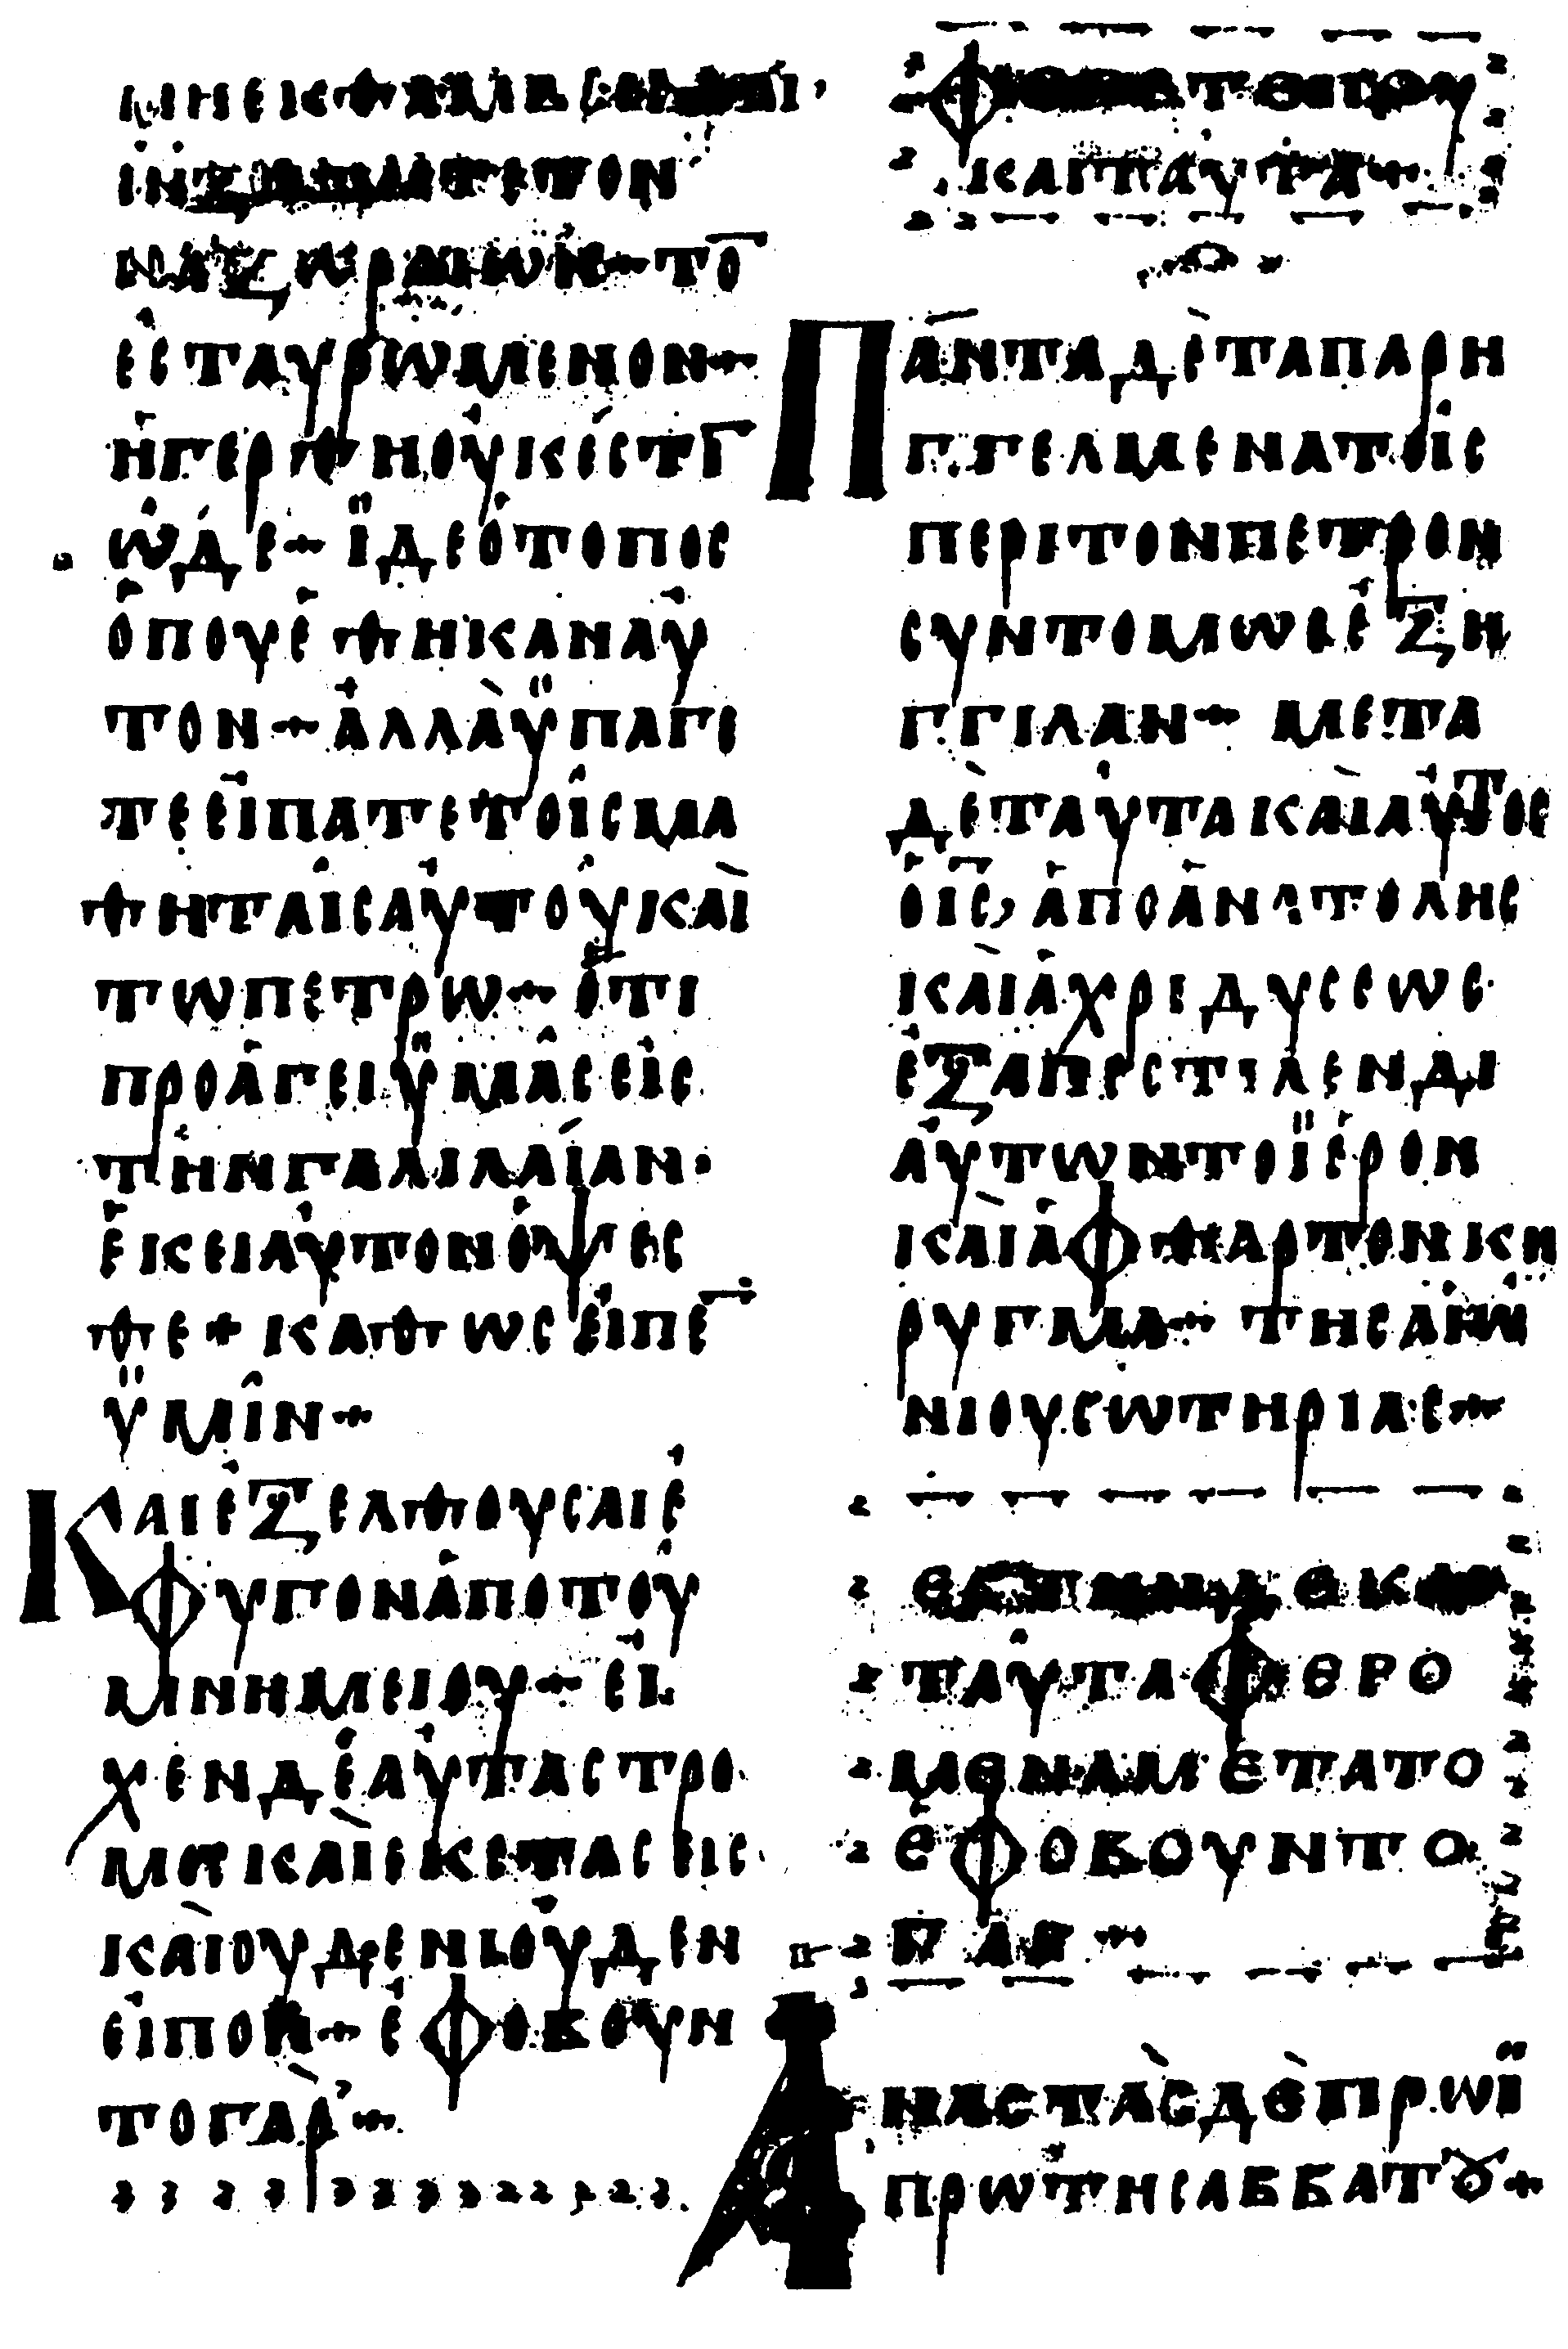 ΜΗΕΚΘΑΜΒ
ΙΝΖΗΤΕΙΤΕΤΟΝ
ΝΑΖΩΡΑΙΟΝ+ΤΟ̅
ΕΣΤΑΥΡΩΜΕΝΟΝ+
ἨΓΕΡΘΗΟΥ̓ΚἘΣΤΙ̅
ὯΔΕ+ΪΔΕὉΤΟΠΟΣ
ὉΠΟΥἘΘΗΚΑΝΑΥ̓
ΤΟΝ+ἈΛΛᾺΫΠΑΓΕ
ΤΕΕἸΠΑΤΕΤΟΙ͂ΣΜΑ
ΘΗΤΑΙ͂ΣΑΥ̓ΤΟΥ͂ΚΑῚ
ΤΩΠΕΤΡΩ+ὍΤΙ
ΠΡΟἈΓΕΙΫΜΑ͂ΣΕἸΣ
ΤῊΝΓΑΛΙΛΑΊΑΝ·
ἘΚΕΙΑΥ̓ΤΟΝὈΨΕΣ
ΘΕ+ΚΑΘΩΣΕἾΠΕ̅
ΫΜΙ͂Ν+
ΚΑΙἘΞΕΛΘΟΥΣΑΙἘ
ΦΥΓΟΝἈΠΟΤΟΥ͂
ΜΝΗΜΕΙΟΥ+ΕἸ
ΧΕΝΔΈΑΥ̓ΤΑΣΤΡΟ
ΜΟΣΚΑῚΕΚΣΤΑΣΕΙΣ·
ΚΑῚΟΥΔΕΝΙΟΥ̓ΔΕΝ
ΕἸΠΟΝ+ἘΦΟΒΟΥΝ
ΤΟΓᾺΡ+
ΚΑΙΤΑΥ̓ΤΑ+
ΠΑΝΤΑΔῈΤΑΠΑΡΗ
ΓΓΕΛΜΕΝΑΤΟΙ͂Σ
ΠΕΡΙΤΟΝΠΕΤΡΟΝ
ΣΥΝΤΟΜΩΣἘΞΗ
ΓΓΙΛΑΝ+ΜΕΤΑ
ΔῈΤΑΥ̓ΤΑΚΑῚΑΥ̓ΤΟΣ
ὉΙ̅Σ̅,ἈΠΟἈΝΑΤΟΛΗΣ
ΚΑῚἈΧΡΙΔΥΣΕΩΣ·
ἘΞΑΠΕΣΤΙΛΕΝΔΙ
ΑΥ̓ΤΩΝΤΟΪΕΡΟΝ
ΚΑῚἈΦΘΑΡΤΟΝΚΗ
ΡΥΓΜΑ+ΤΗΣΑἸΩ
ΝΙΟΥΣΩΤΗΡΙΑΣ+
ΕΣΤΗΝΔΕΚΑΙ
ΤΑΥ͂ΤΑΦΕΡΟ
ΜΕΝΑΜΕΤΑΤΟ
ἘΦΟΒΟΥΝΤΟ
ΓΑΡ+
ΑΝΑΣΤᾺΣΔῈΠΡΩΪ
ΠΡΩΤΗΣΑΒΒΑΤΟΥ+